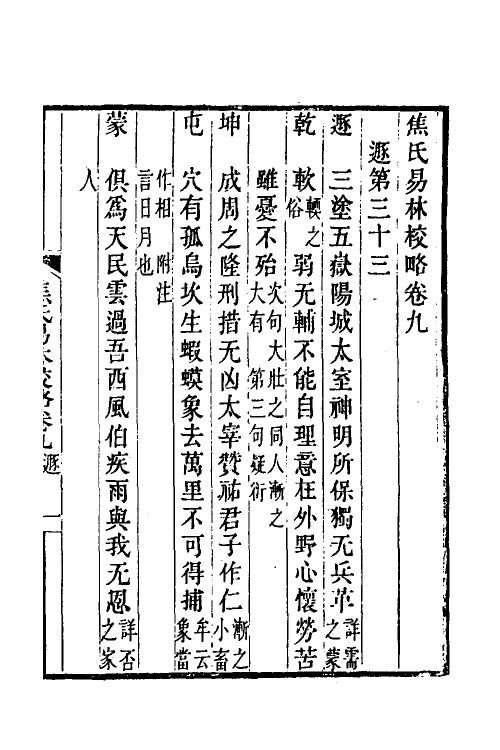 焦氏易林校略卷九
遯第三十三
遯　三塗五嶽陽城太室神明所保獨无兵革詳需之蒙
乾　軟輭之俗弱无輔不能自理意在外野心懷勞苦
雖憂不殆次句大壯之同人漸之大有　第三句疑衍
坤　成周之隆刑措无凶太宰贊祐君子作仁漸之小畜
屯　穴有狐烏坎生蝦蟆象去萬里不可得捕牟云象當
作相　附注言日月也
蒙　俱爲天民雲過吾西風伯疾雨與我无恩詳否之家
人
焦氏易林校略卷九　遯　一